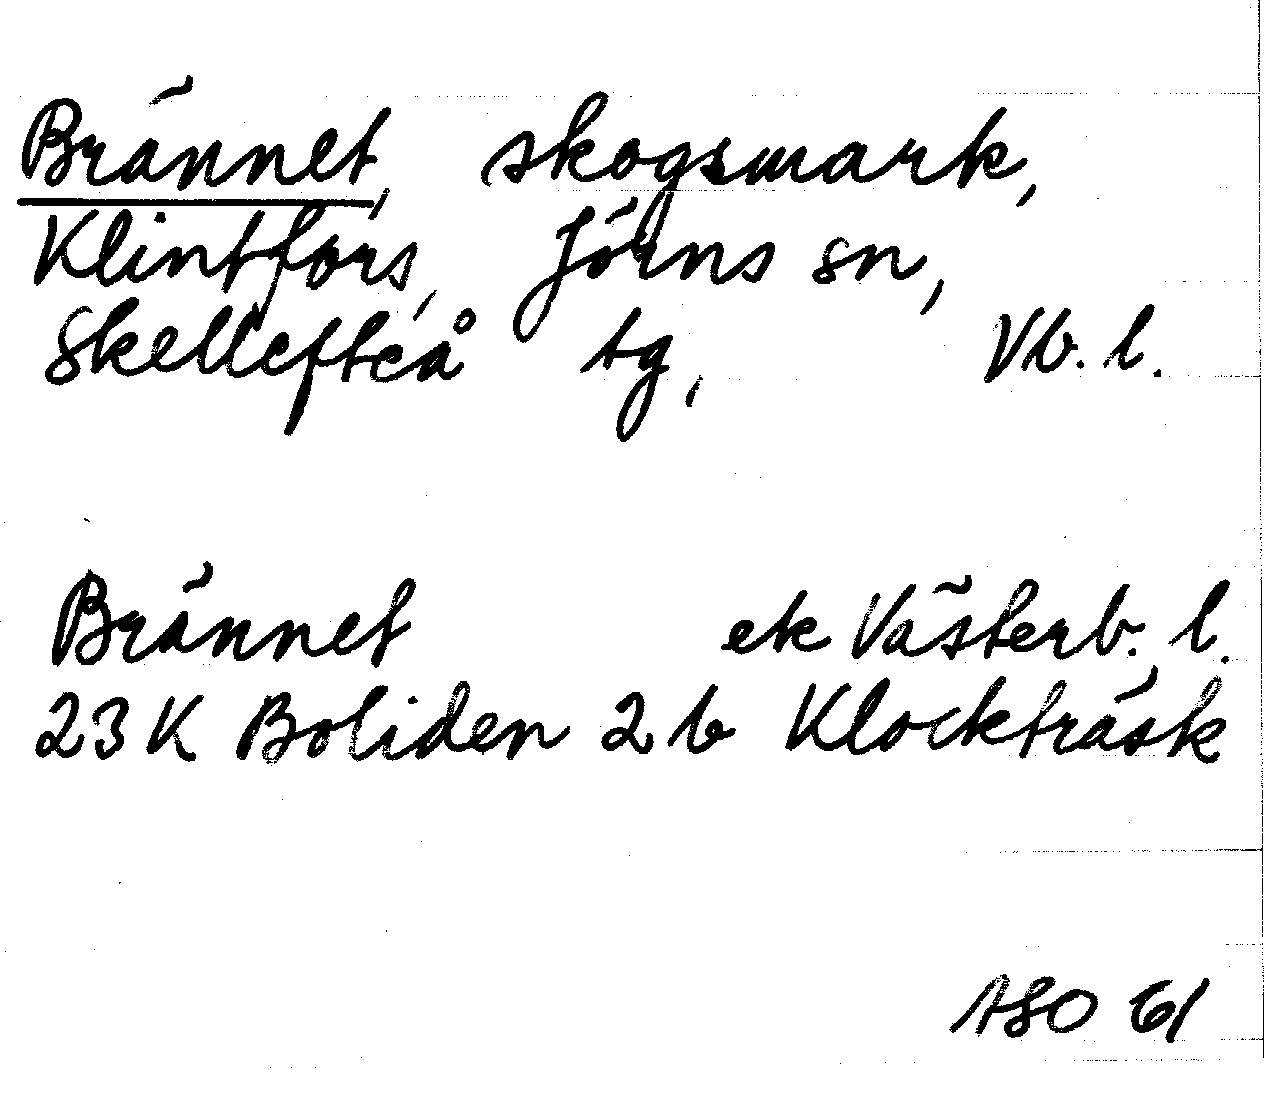 Brännet, skogsmark,
Klintfors, Jörns sn,
Skellefteå tg, Vb. l.
Brännet ek Västerb. l.
23 K Boliden 2 b Klockträsk
ASO 61